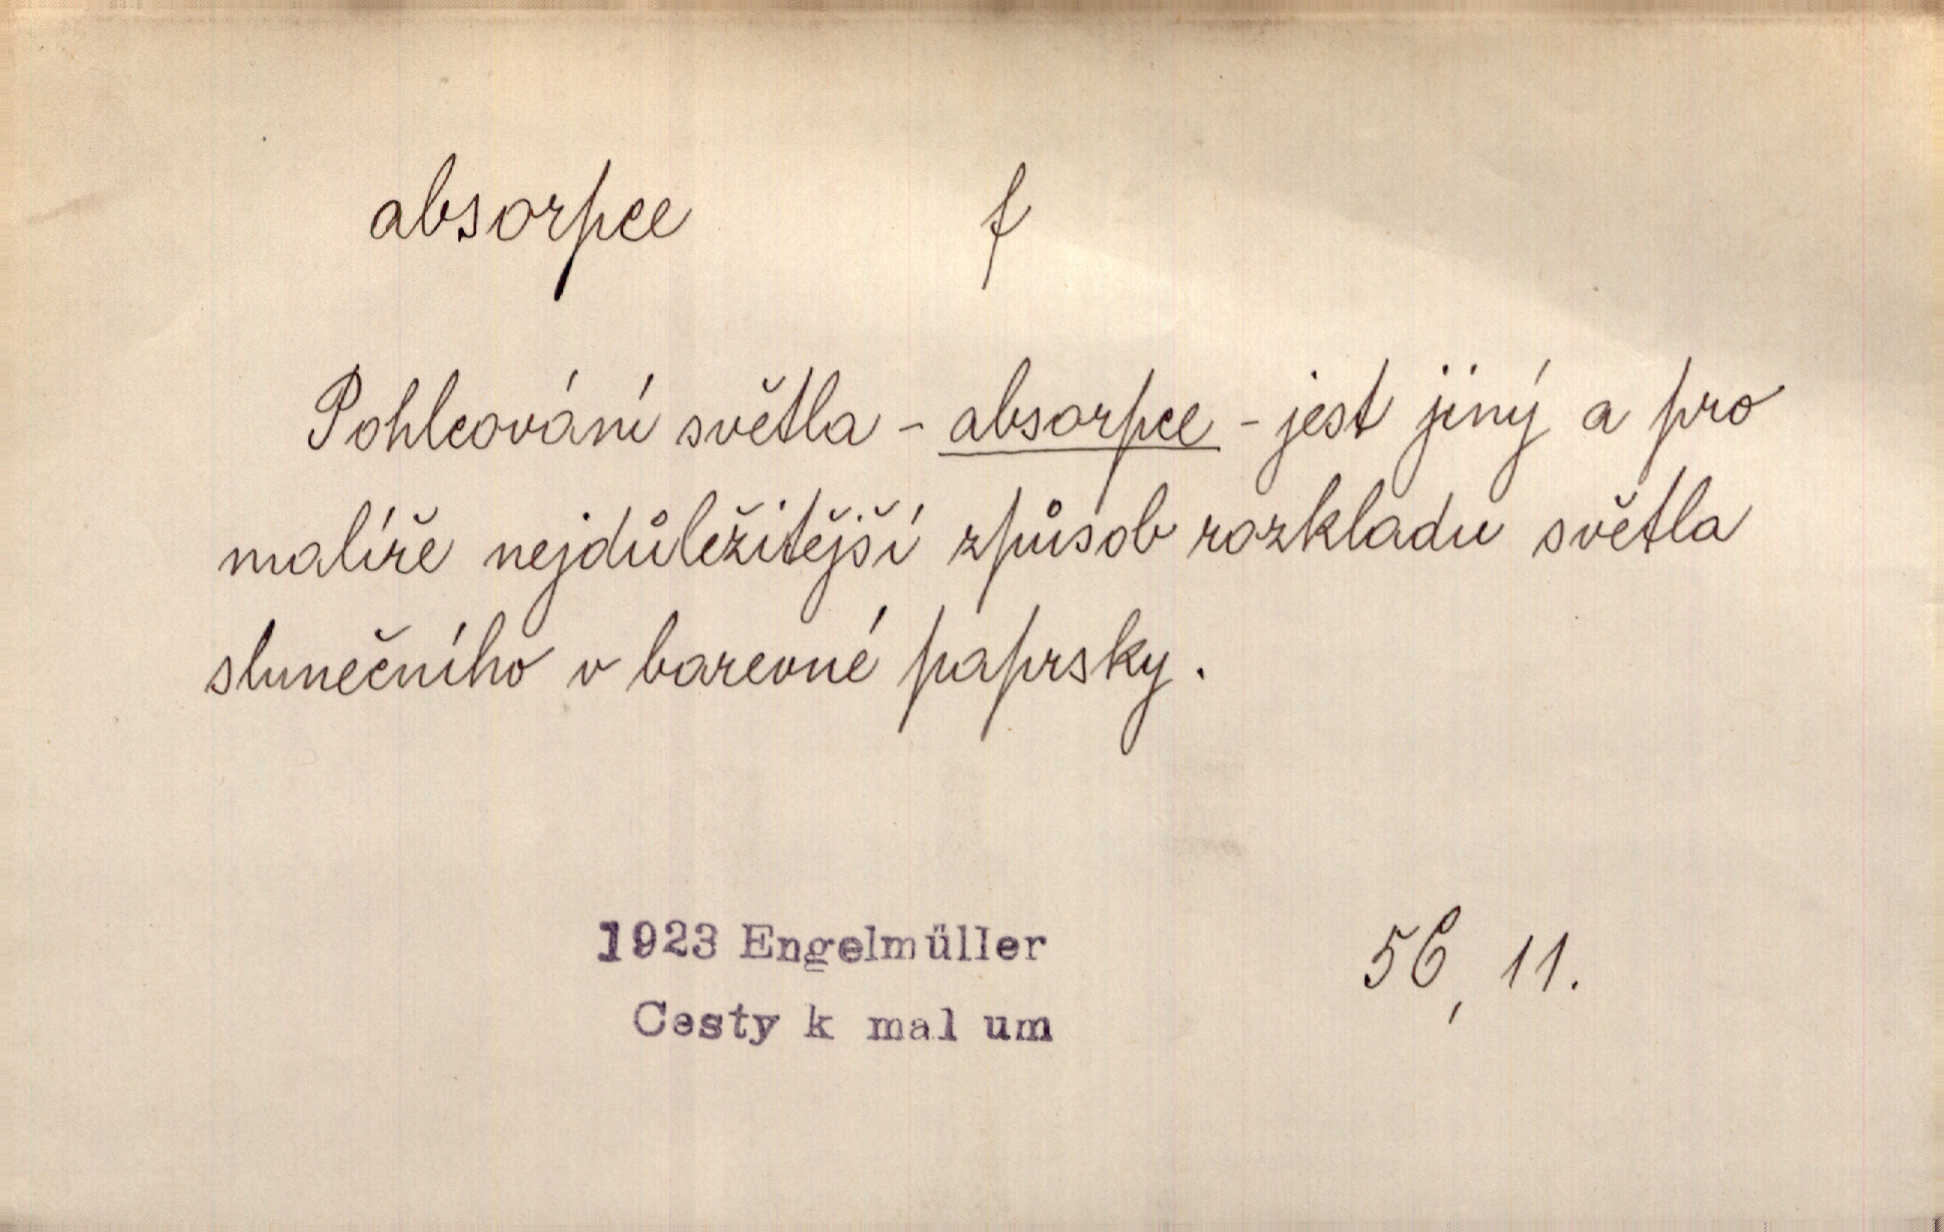 absorpce f
Pohlcování světla - absorpce - jest jiný a pro
malíře nejdůležitější způsob rozkladu světla
slunečního v barevné paprsky.
1923 Engelmüller 56, 11.
Cesty k mal um